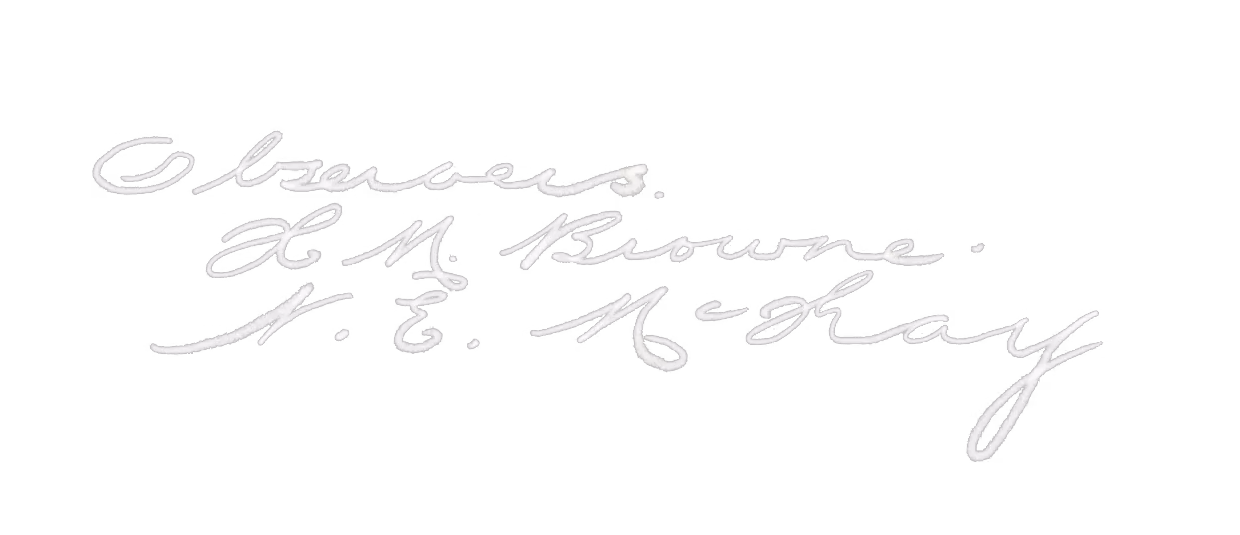 Observers.
H M. Browne.
N. E. McKay